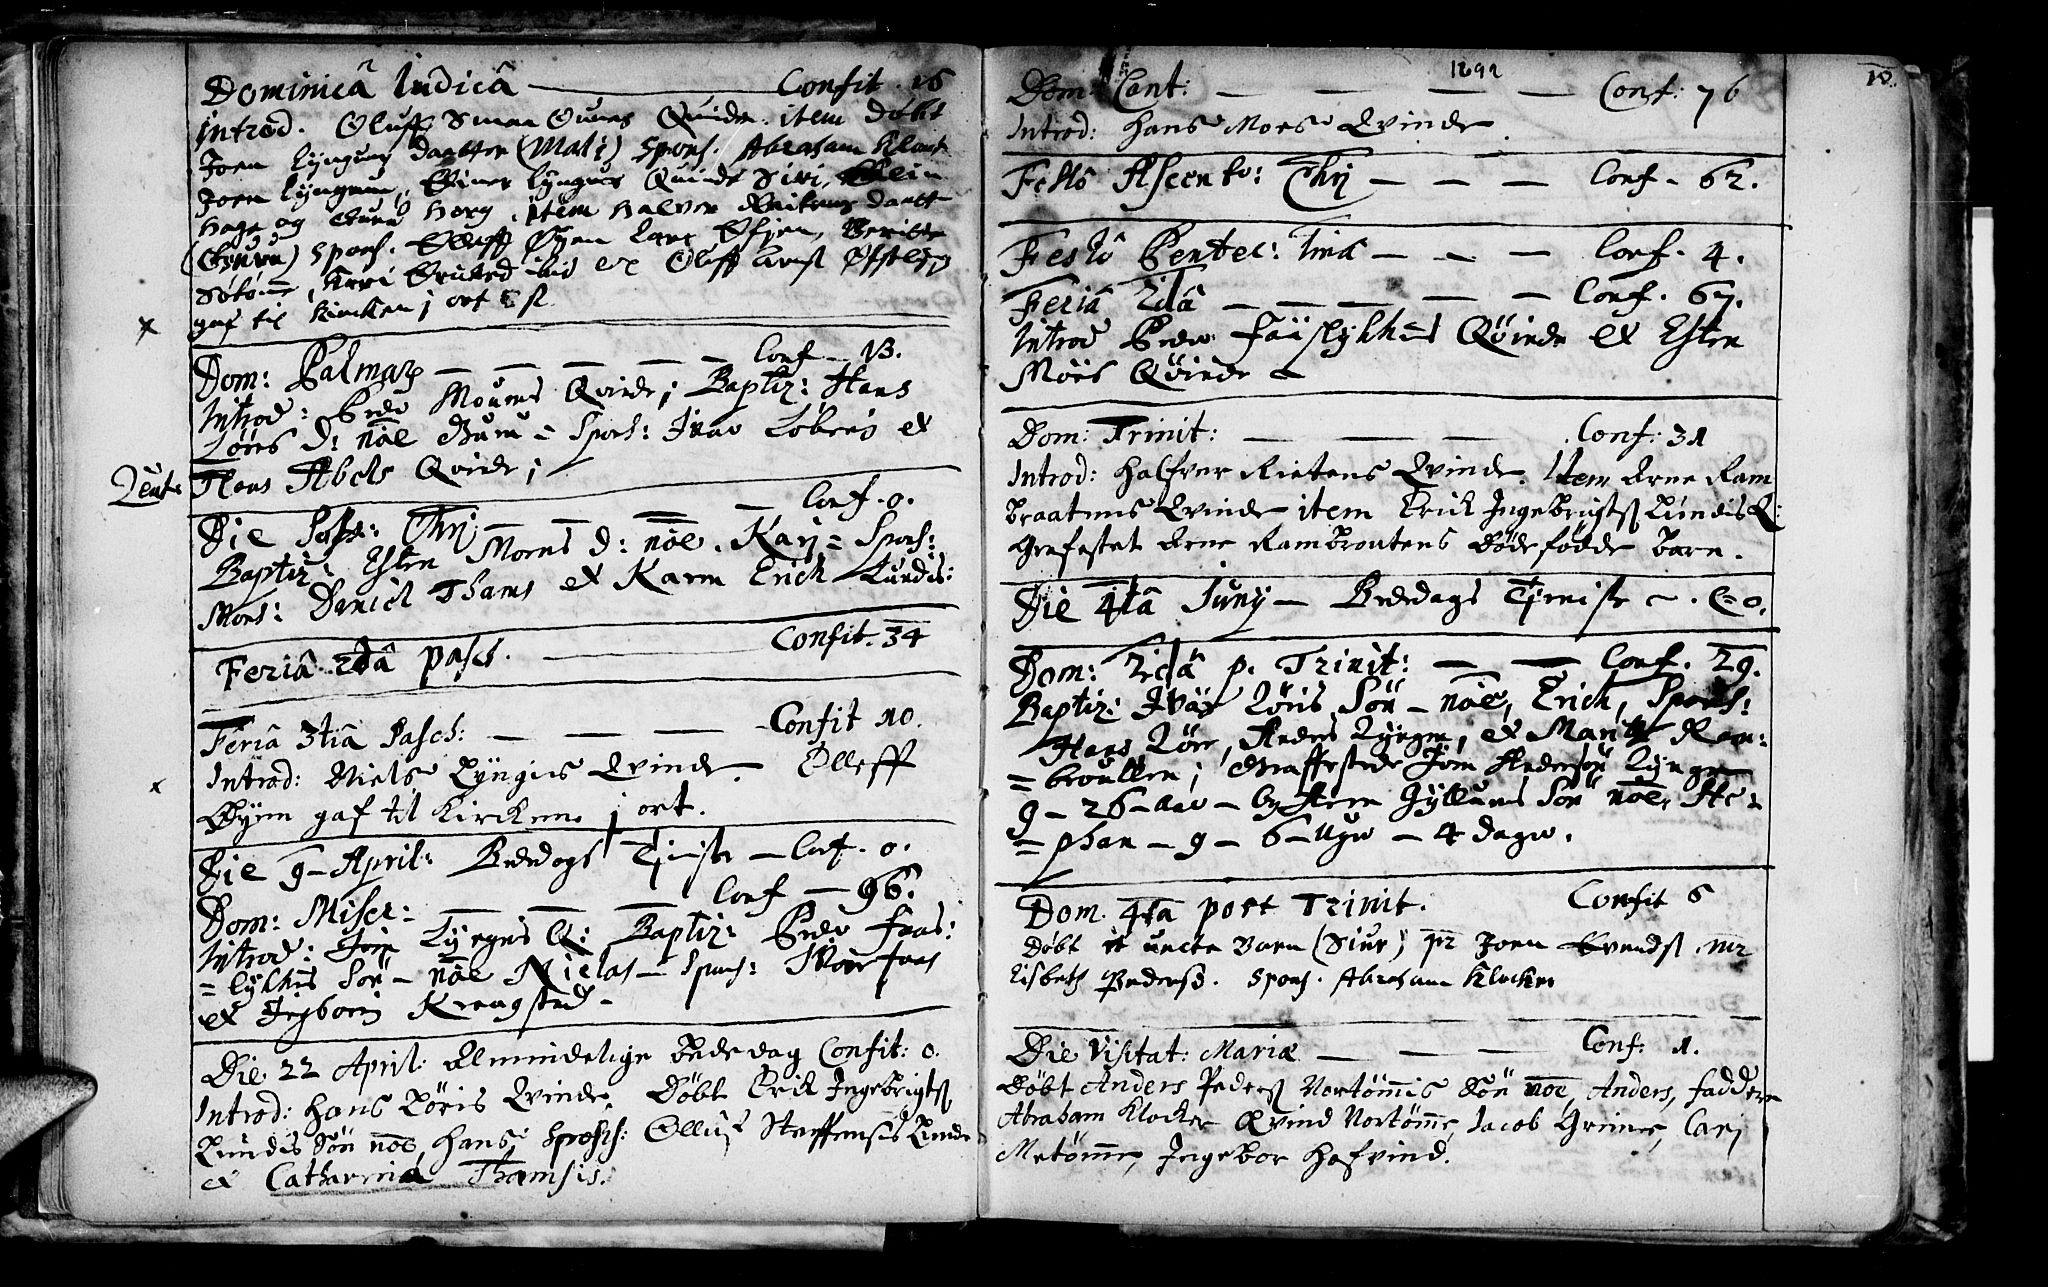 Dominicâ Iudicâ — Confit. 16
Introd. Oluff Smaa Quinde. item døbt
Joen Lyngens daatter (Mali) spons. Abraham Klock
Joen Lyngum, Einer Lynges Quinde Siri,
Hage og Guru Horg, item Halvor Rritens daatter
(Guru) spons. Olluff Øyen Lars Øfjen, Beritte
Søtømme, Kari ibid et Oluff
gaf til Kircken j ort
Dom: Palmar — — — — Conf — 13.
Introd: Peder Moums Qvinde; Baptiz: Hans
Löres D: nõe Guru = Spons: Ivar Löberg et
Hans Abels Qvinde;
Die Pass: Chrj — — — Conf. 0.
Baptiz: Esten Moens D: nõe. Karj = Spons:
Moes: Daniel Thams et Karen Erich Lundis:
Feriâ 2dâ pasch. — Confit. 34
Feria 3tiâ Pasch: — — — Confit 10.
Introd: Niels Lÿngens Qvinde. Olleff
Øyen gaf til Kircken j ort.
Die 9 — April: Bededags Tjeniste — Conf. 0.
Dom: Miser: — — — Conf — 96.
Introd: Join Lyngens Q: Baptiz: Peder Faas:
= lykkis Sön — nõe Nielas — Spons: Iver Faas
et Ingborj Kraagstad —
Die 22 April: Almindelige Bededag Confit: 0.
Introd: Hans Löris Qvinde. Døbt Erick Ingebrigts
Lundis Sön nõe, Hans. Spons: Ollus Steffensis Lunde
et Catharina Thamsis.
1692
10.
Dom: Cant: — — — — Conf: 76
Introd: Hans Moes Qvinde.
Festô Ascento: Chrj — — — Conf — 62.
Festô Pentec: 1mâ — — — Conf. 4.
Feriâ 2dâ — — — — — Conf. 67.
Introd Peder Faaslykkis Qvinde et Esten
Möes Qvinde
Dom: Trinit: — — — Conf: 31
Introd: Halfvor Rietens Qvinde. Item Arne Ram
braatens Qvinde item Erick Ingebrigts Lundis Q:
Grafestet Arne Rambroutens dödfødde barn.
Die 4tâ Junij — Bededags Tjeniste — . C=0.
Dom: 2dâ p. Trinit: — — Conf. 29.
Baptiz: Ivär Löris Sön — nõe, Erich, Spons:
Hans Löre, Anders Lyngen, et Marit Ram:
= broutten; Graffestede Join Andersön Lyngen
g — 26 — Aar — og Arne Gyllums Sön nõe, Ste =
= phan — g — 6 — Uger — 4 dager.
Dom. 4ta post Trinit. Confit 6
Døbt it uecte Barn (Siur) pr Joen Evends mr
Lisbeth Pedersd. Spons. Abraham Klocker
Die Visitat: Mariæ — — — Conf: 1.
Døbt Anders Peders Nortömmis Sön nõe, Anders, faddere
Abraham Klocker Evind Nortömme, Jacob Grinne, Carj
Metömme, Ingebor Hafvind.